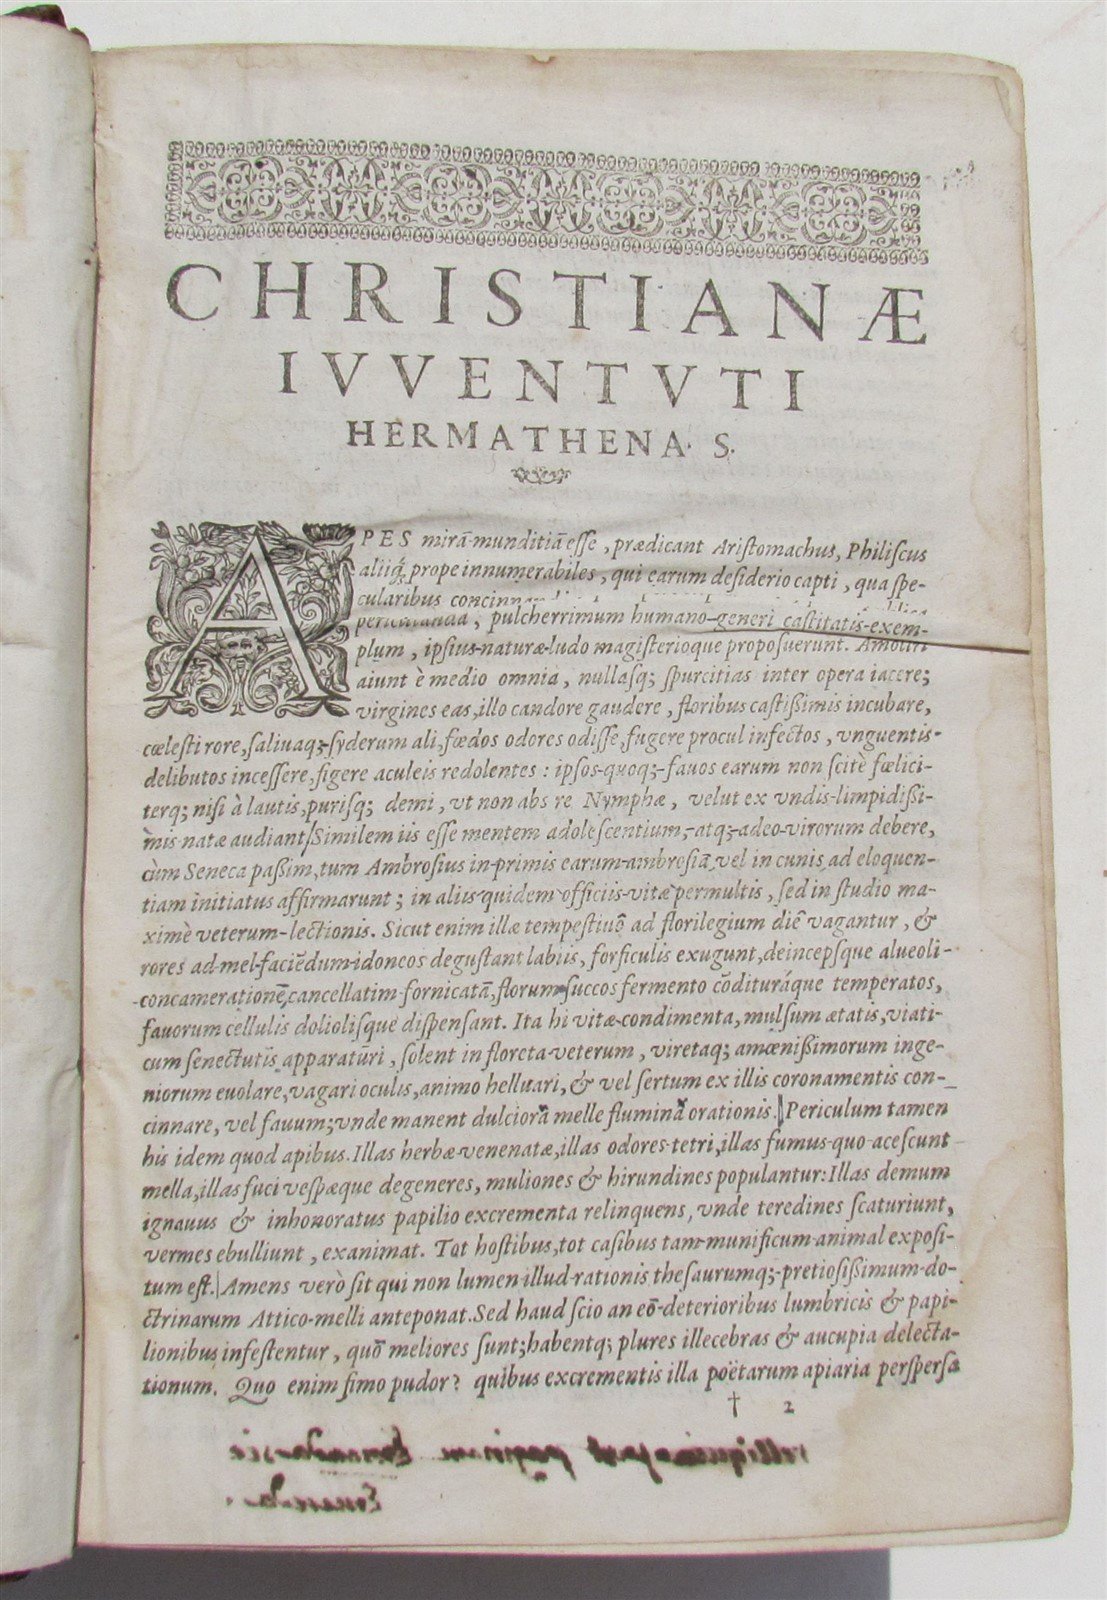 CHRISTIANÆ
IVVENTVTI
HERMATHENA. S.
APES mirā munditiā esse, prædicant Aristomachus, Philiscus
aliiq́; prope innumerabiles, qui earum desiderio capti, qua spe-
cularibus
pulcherrimum humano generi castitatis exem-
plum, ipsius naturæ ludo magisterioque proposuerunt. Amoliri
aiunt è medio omnia, nullasq; spurcitias inter opera iacere;
virgines eas, illo candore gaudere, floribus castißimis incubare,
cœlesti rore, saliuaq; syderum ali, fœdos odores odisse, fugere procul infectos, vnguentis
delibutos incessere, figere aculeis redolentes: ipsos quoq; fauos earum non scitè fœlici-
terq; nisi à lautis, purisq; demi, vt non abs re Nymphæ, velut ex vndis limpidißi-
mis natæ audiant. Similem iis esse mentem adolescentium, atq; adeo virorum debere,
cùm Seneca paßim, tum Ambrosius in primis earum ambrosiā, vel in cunis, ad eloquen-
tiam initiatus affirmarunt; in aliis quidem officiis vitæ permultis, sed in studio ma-
ximè veterum lectionis. Sicut enim illæ tempestiuō ad florilegium diē vagantur, &
rores ad mel faciēdum idoneos degustant labiis, forficulis exugunt, deincepsque alueoli
concamerationē, cancellatim fornicatā, florum succos fermento cōdituráque temperatos,
fauorum cellulis doliolisque dispensant. Ita hi vitæ condimenta, mulsum ætatis, viati-
cum senectutis apparaturi, solent in floreta veterum, viretaq; amœnißimorum inge-
niorum euolare, vagari oculis, animo helluari, & vel sertum ex illis coronamentis con-
cinnare, vel fauum; vnde manent dulciora melle flumina orationis. Periculum tamen
his idem quod apibus. Illas herbæ venenatæ, illas odores tetri, illas fumus quo acescunt
mella, illas fuci vespæque degeneres, muliones & hirundines populantur: Illas demum
ignauus & inhonoratus papilio excrementa relinquens, vnde teredines scaturiunt,
vermes ebulliunt, exanimat. Tot hostibus, tot casibus tam munificum animal exposi-
tum est. Amens verò sit qui non lumen illud rationis thesaurumq; pretiosißimum do-
ctrinarum Attico melli anteponat. Sed haud scio an eō deterioribus lumbricis & papi-
lionibus infestentur, quō meliores sunt; habentq; plures illecebras & aucupia delecta-
tionum. Quo enim fimo pudor? quibus excrementis illa poëtarum apiaria perspersa
† 2